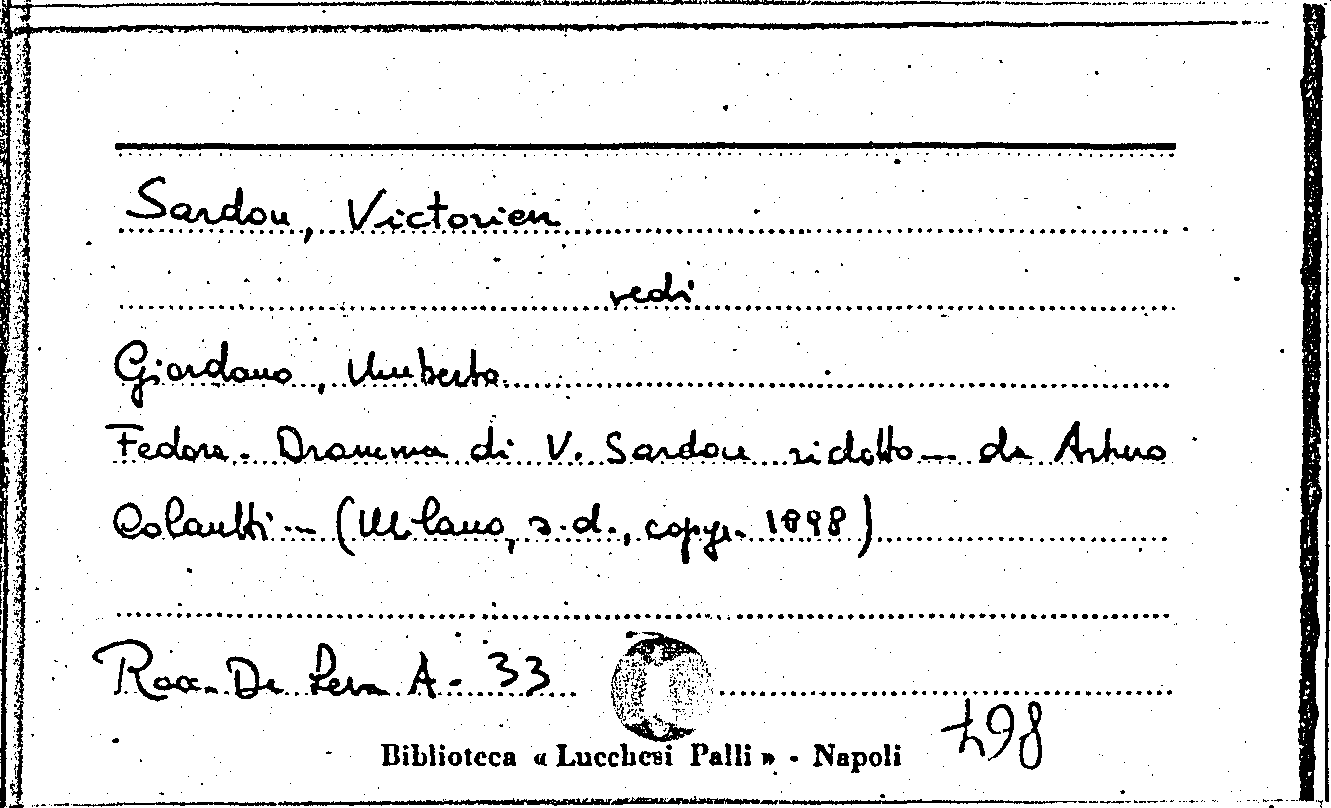 Sardou, Victorien
vedi
Giordano, Umberto
Fedora. Dramma di V. Sardou ridotto — da Arturo
Colautti — (Milano, s.d., copyr. 1898)
Racc. De Leva A - 33
Biblioteca « Lucchesi Palli » - Napoli
498